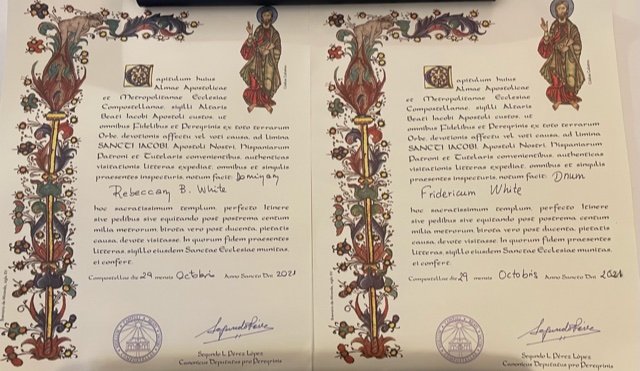 Capitulum huius
Almae Apostolicae
et Metropolitanae Ecclesiae
Compostellanae, sigilli Altaris
Beati Iacobi Apostoli custos, ut
omnibus Fidelibus et Peregrinis ex toto terrarum
Orbe, devotionis affectu vel voti causa, ad limina
SANCTI IACOBI, Apostoli Nostri, Hispaniarum
Patroni et Tutelaris convenientibus, authenticas
visitationis litteras expediat, omnibus et singulis
praesentes inspecturis, notum facit: Dominam
Rebeccam B. White
hoc sacratissimum templum, perfecto Itinere
sive pedibus sive equitando post postrema centum
milia metrorum, birota vero post ducenta, pietatis
causa, devote visitasse. In quorum fidem praesentes
litteras, sigillo eiusdem Sanctae Ecclesiae munitas,
ei confert.
Compostellae die 29 mensis Octobris Anno Sancto Dni 2021
Segundo L. Pérez López
Canonicus Deputatus pro Peregrinis
Capitulum huius
Almae Apostolicae
et Metropolitanae Ecclesiae
Compostellanae, sigilli Altaris
Beati Iacobi Apostoli custos, ut
omnibus Fidelibus et Peregrinis ex toto terrarum
Orbe, devotionis affectu vel voti causa, ad limina
SANCTI IACOBI, Apostoli Nostri, Hispaniarum
Patroni et Tutelaris convenientibus, authenticas
visitationis litteras expediat, omnibus et singulis
praesentes inspecturis, notum facit: Dnum
Fridericum White
hoc sacratissimum templum, perfecto Itinere
sive pedibus sive equitando post postrema centum
milia metrorum, birota vero post ducenta, pietatis
causa, devote visitasse. In quorum fidem praesentes
litteras, sigillo eiusdem Sanctae Ecclesiae munitas,
ei confert.
Compostellae die 29 mensis Octobris Anno Sancto Dni 2021
Segundo L. Pérez López
Canonicus Deputatus pro Peregrinis